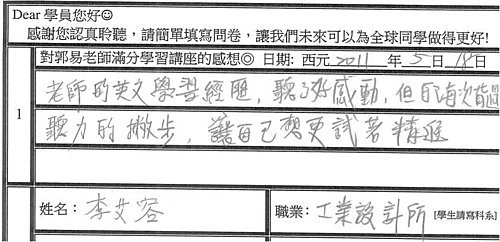 Dear 學員您好☺
感謝您認真聆聽，請簡單填寫問卷，讓我們未來可以為全球同學做得更好!
對郭易老師滿分學習講座的感想◎ 日期: 西元 2011 年 5 日 18 日
1
老師的英文學習經歷，聽了好感動，但
聽力的撇步，讓自己想更試著精進
姓名： 李艾容
職業： 工業設計所 [學生請寫科系]